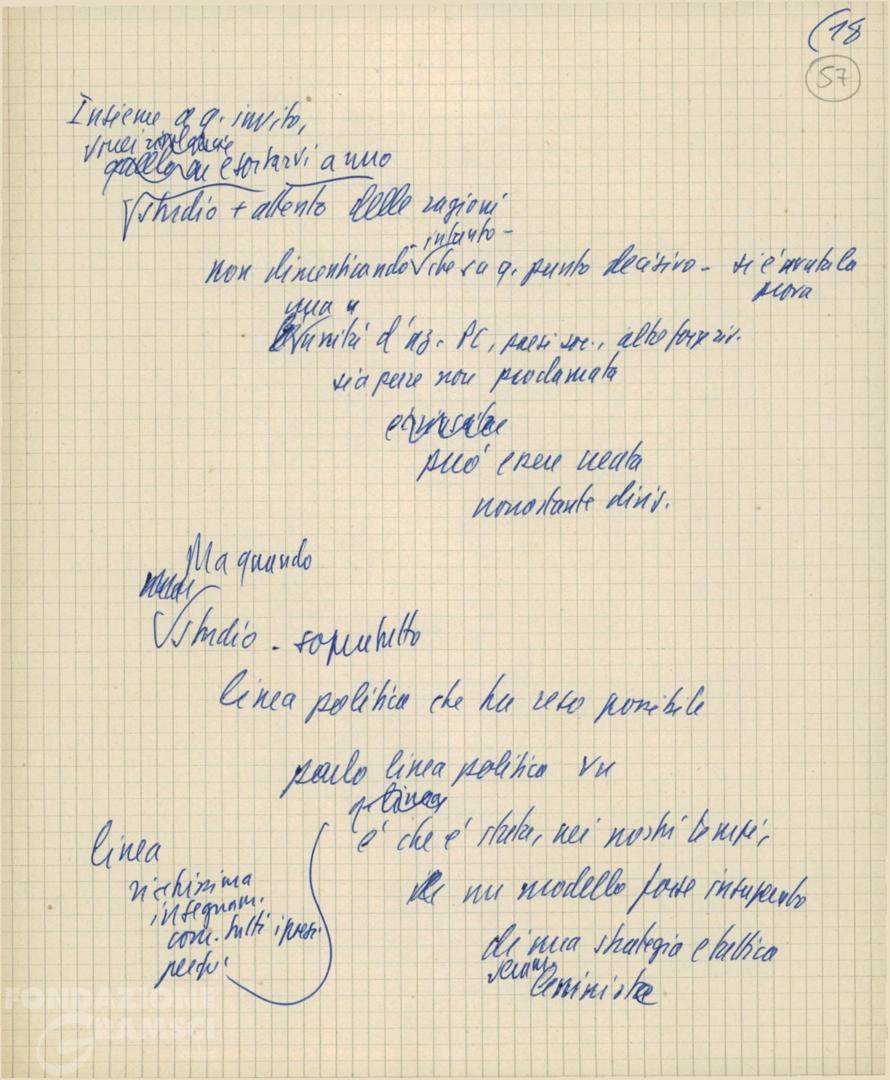 (18
57
Insieme a q. invito,
vorrei
esortarvi a uno
studio + attento delle ragioni
intanto -
non dimenticando che su q. punto decisivo - si è avuta la
prova
una
unità d'az. PC, paesi soc., altre forze riv.
sia pure non proclamata
può essere
nonostante divis.
Ma quando
studio - soprattutto
linea politica che ha reso possibile
parlo linea politica VN
linea
è che è stata, nei nostri tempi,
un modello forse insuperato
di una strategia e tattica
leninista
linea
ricchissima
insegnam.
com. tutti i paesi
perfino
FONDAZIONE
GRAMSCI